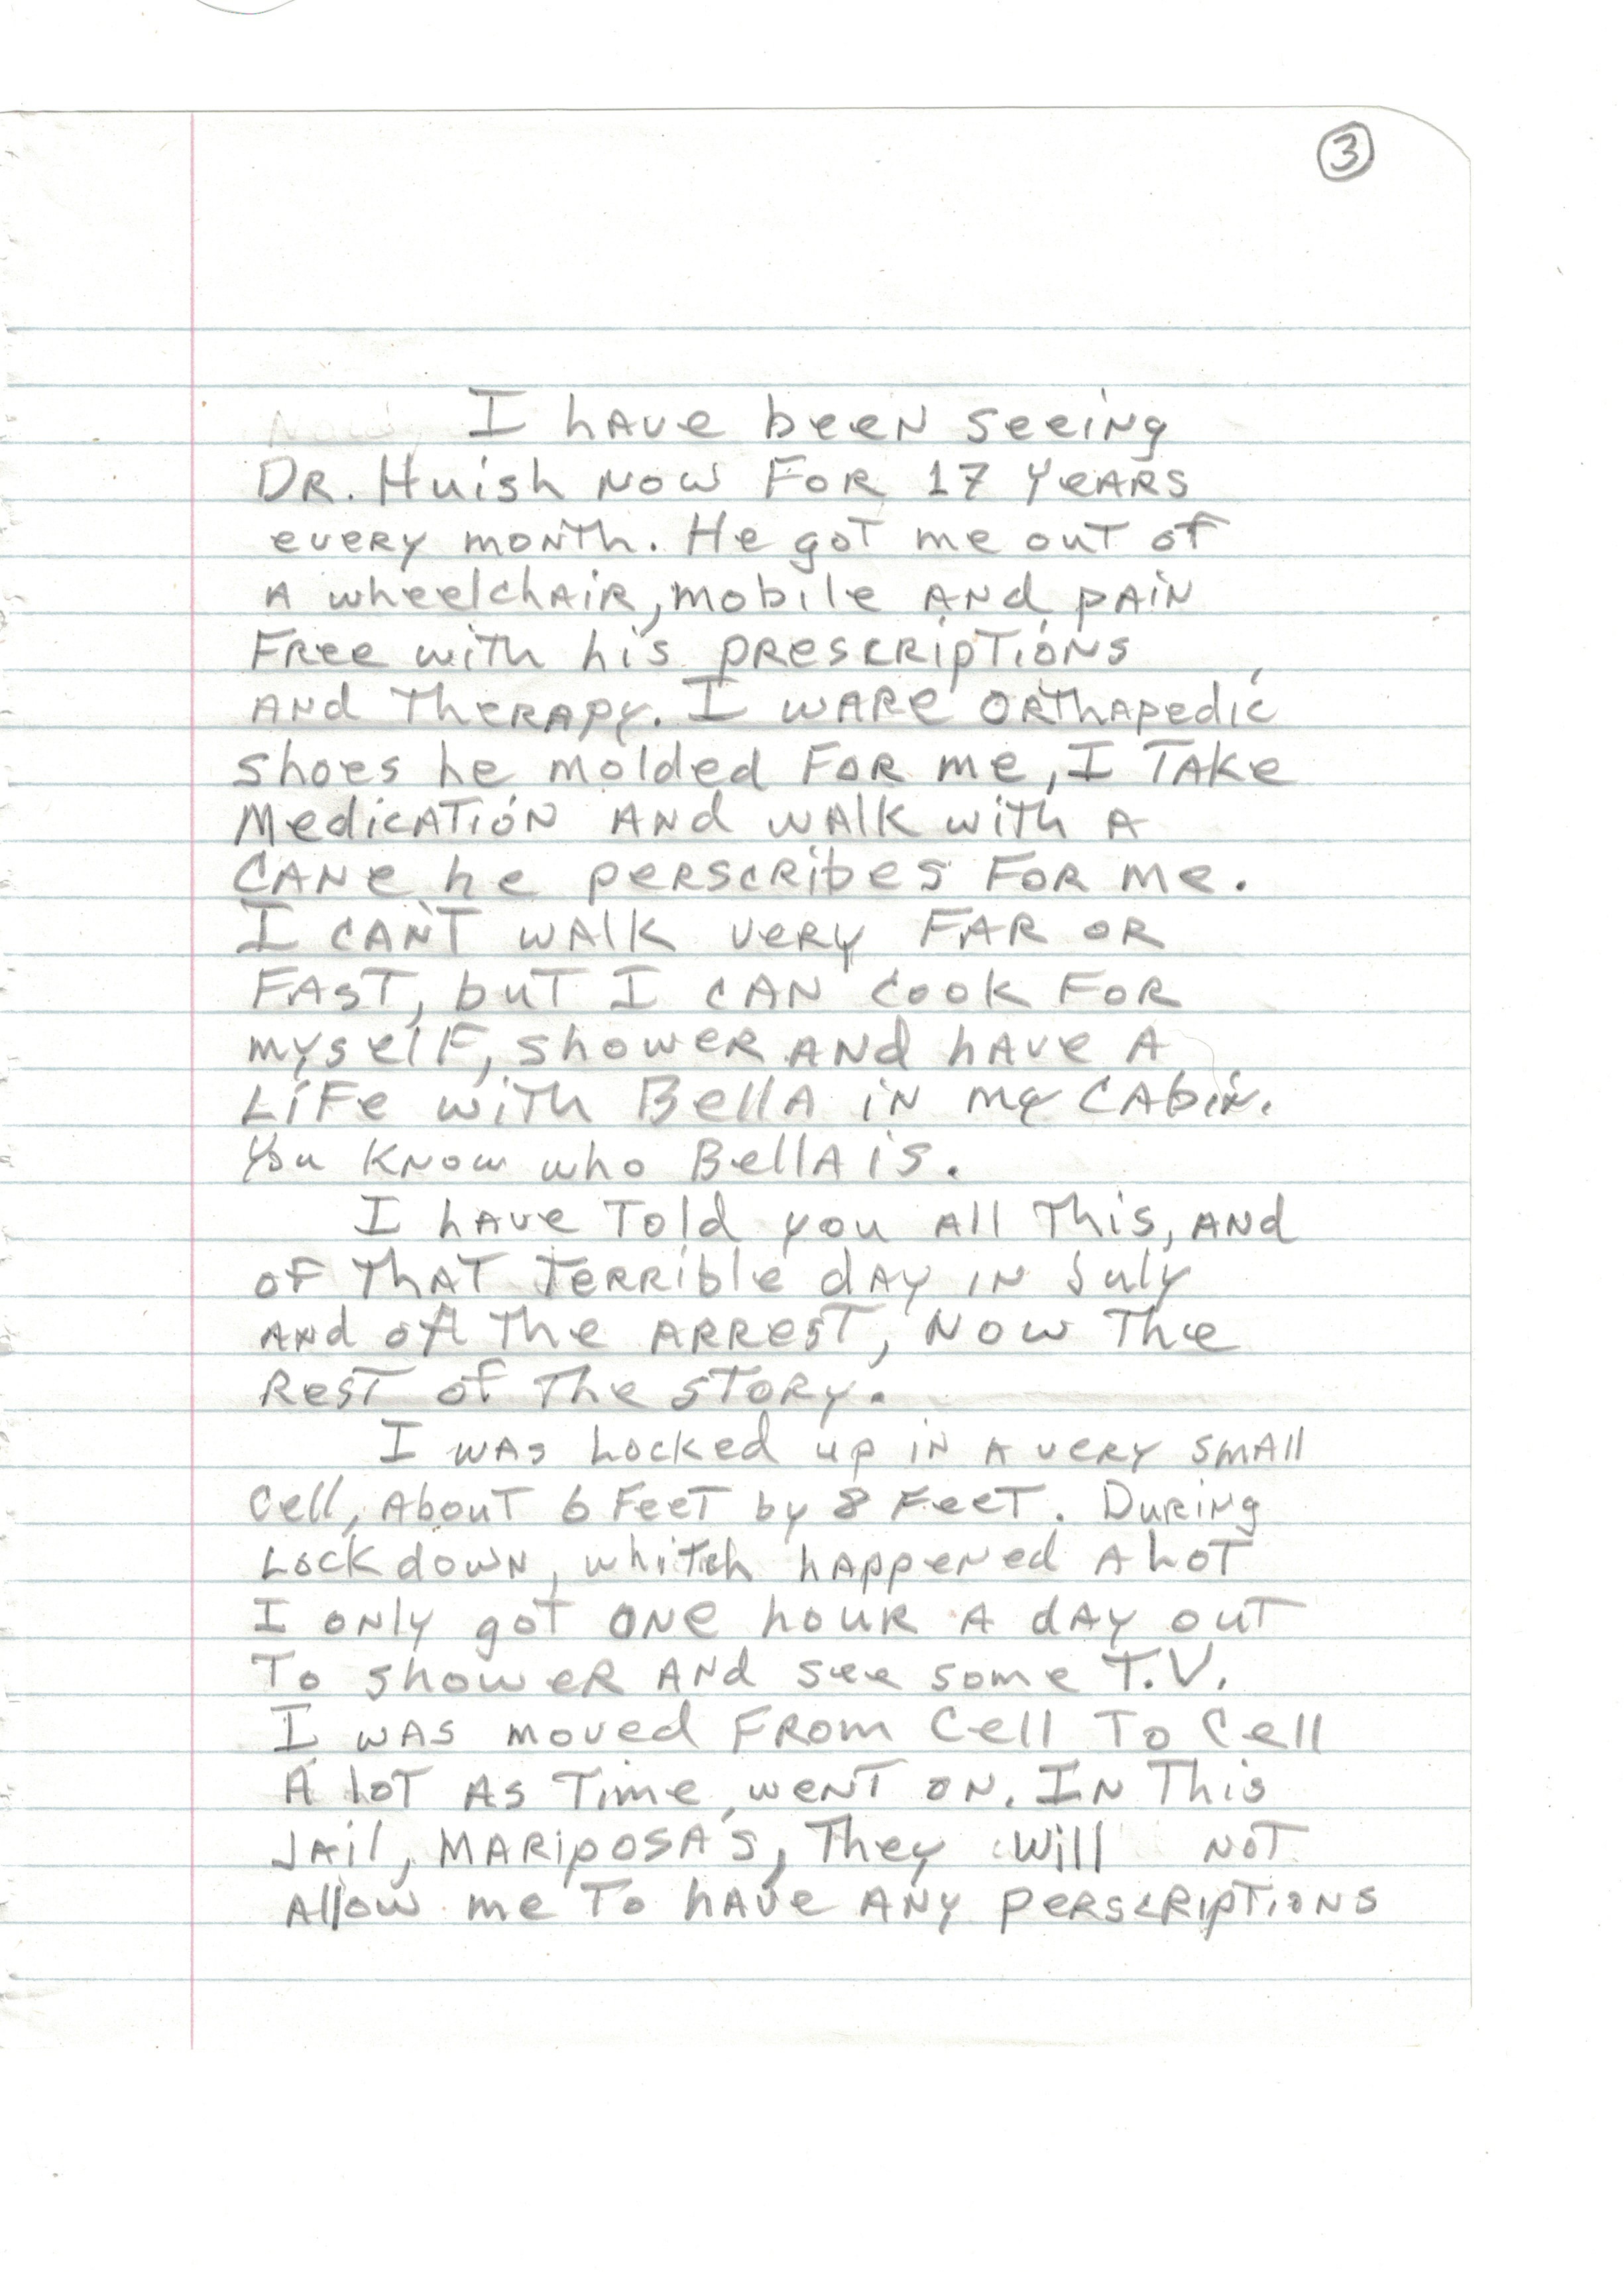 3
I have been seeing
Dr. Huish now for 17 years
every month. He got me out of
a wheelchair, mobile and pain
free with his prescriptions
and therapy. I ware orthapedic
shoes he molded for me, I take
Medication and walk with a
cane he perscribes for me.
I can't walk very far or
fast, but I can cook for
myself, shower and have a
Life with Bella in my cabin.
You know who Bella is.
I have told you all this, and
of that terrible day in July
and of the arrest, now the
rest of the story.
I was Locked up in a very small
cell, about 6 feet by 8 feet. During
Lockdown, whitch happened a Lot
I only got one hour a day out
To shower and see some T.V.
I was moved from cell to cell
A Lot as time went on. In this
Jail, Mariposa's, they will not
allow me to have any perscriptions